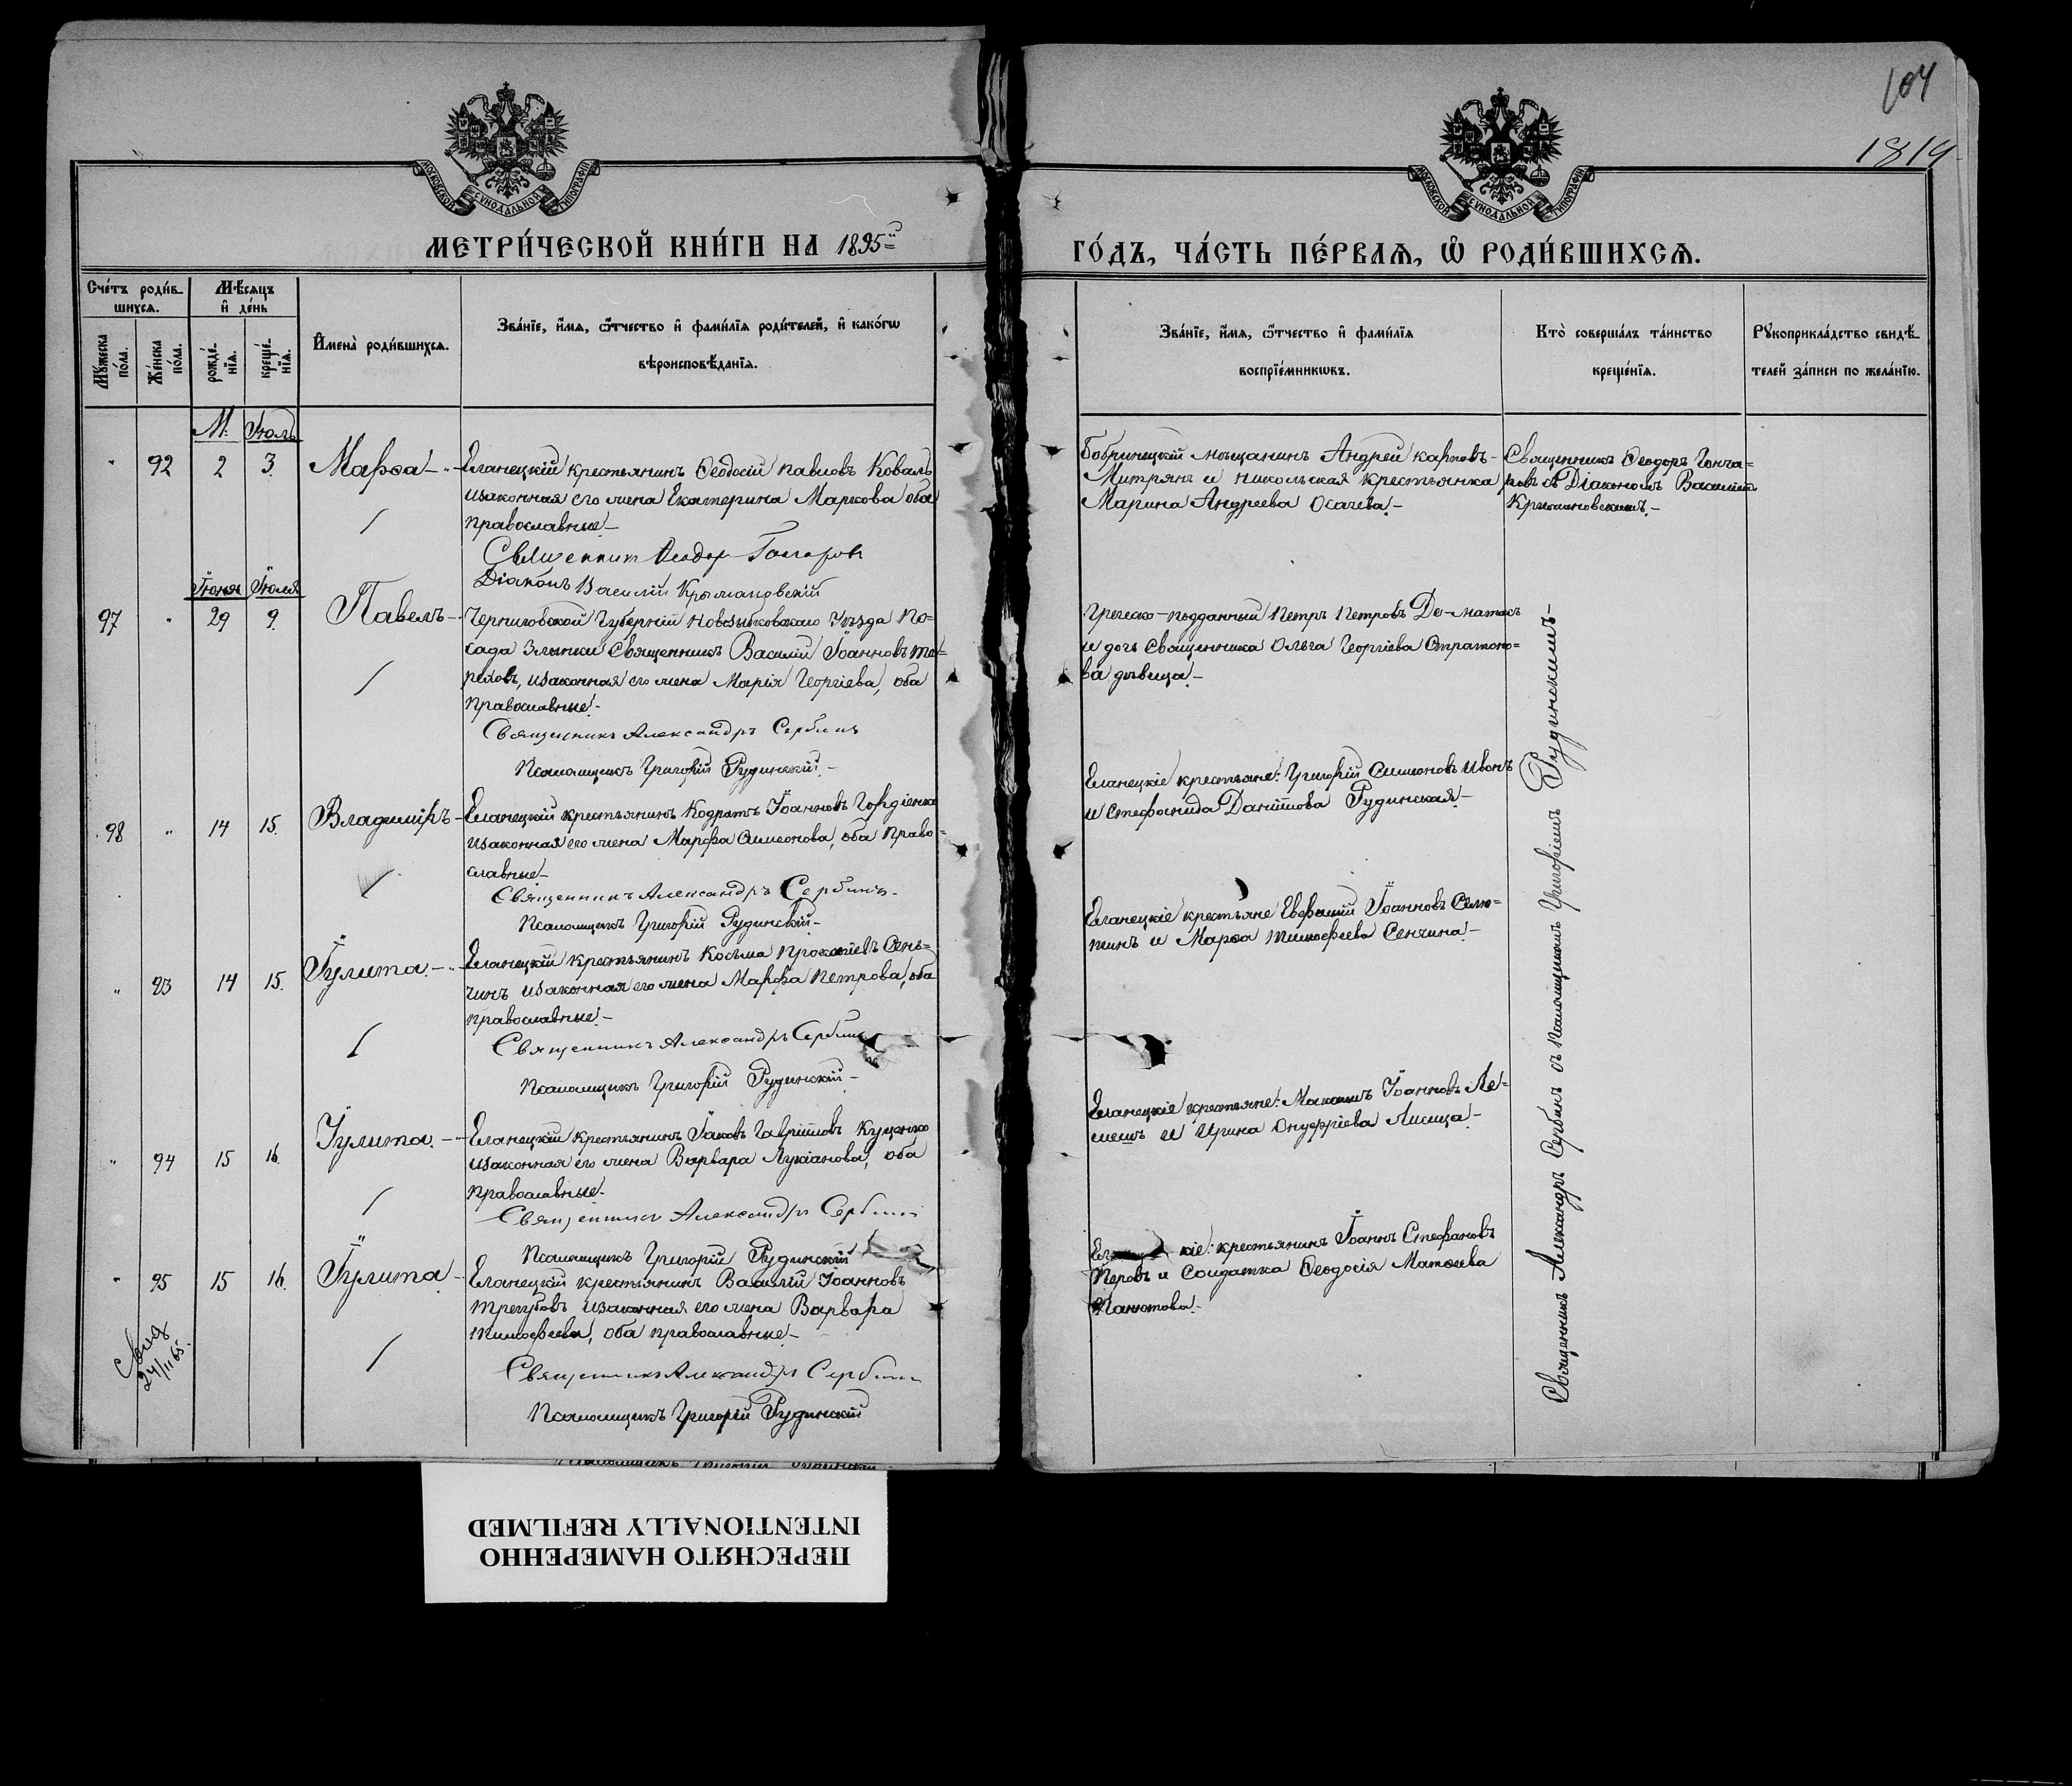 104
1819
МОСКОВСКОЙ СУНОДАЛЬНОЙ ТИПОГРАФІИ
МОСКОВСКОЙ СУНОДАЛЬНОЙ ТИПОГРАФІИ
МЕТРИ́ЧЕСКОЙ КНИ́ГИ НА 1895й
ГО́ДЪ, ЧА́СТЬ ПЕ́РВАѦ, Ѡ҆ РОДИ́ВШИХСѦ.
Сче́тъ роди́в-
шихсѧ.
Мѣ́сѧцъ
и҆ де́нь
Мꙋ́жеска по́ла.
Же́нска по́ла.
рожде́-
нїѧ.
креще́-
нїѧ.
И҆мена̀ роди́вшихсѧ.
Зва́нїе, и҆́мѧ, ѻ҆́тчество и҆ фами́лїѧ роди́телей, и҆ како́гѡ
вѣроисповѣ́данїѧ.
Зва́нїе, и҆́мѧ, ѻ҆́тчество и҆ фами́лїѧ
воспрїе́мникѡвъ.
Кто̀ соверша́лъ та́инство
креще́нїѧ.
Рꙋкоприкла́дство свидѣ́-
телей за́писи по жела́нїю.
М: Іюль
92 2 3. Марѳа
Еланецкій крестьянинъ Ѳеодосій Павловъ Коваль
и законная его жена Екатерина Маркова оба
православные
Священник Ѳеодор Гончаров
Діаконъ Василій Крыжановскій
Бобринецкій мѣщанинъ Андрей Карповъ
Митрянъ и Никольская крестьянка
Марина Андреева Осачева.
Священникъ Ѳеодоръ Гонча=
ровъ съ Діакономъ Василіемъ
Крыжановскимъ.
Іюня Іюля
97 29 9. Павелъ
Черниговской Губерніи Новозыбковскаго Уѣзда По=
сада Злынки Священникъ Василій Іоанновъ Те=
реховъ, и законная его жена Марія Георгіева, оба
православные.
Священникъ Александръ Сербинъ
Псаломщикъ Григорій Рудинскій
Греческо-подданный Петръ Петровъ Де-
и дочь Священника Ольга Георгіева Стратоно=
ва дѣвица.
98 14 15. Владиміръ
Еланецкій крестьянинъ Кодратъ Іоанновъ Гордіенко
и законная его жена Марфа Симеонова, оба право=
славные
Священникъ Александръ Сербинъ
Псаломщикъ Григорій Рудинскій
Еланецкіе крестьяне: Григорій Симеоновъ Ивонъ
и Стефанида Даніилова Рудинская.
93 14 15. Іулита
Еланецкій крестьянинъ Косьма Прокопіевъ Сень=
чинъ и законная его жена Марфа Петрова, оба
православные.
Священникъ Александръ Сербинъ
Псаломщикъ Григорій Рудинскій
Еланецкіе крестьяне Евфимій Іоанновъ Селю=
тинъ и Марѳа Тимофеева Сенчина.
94 15 16. Іулита
Еланецкій крестьянинъ Іаковъ Гавріиловъ Куценко
и законная его жена Варвара Лукіанова, оба
православные.
Священникъ Александръ Сербинъ
Псаломщикъ Григорій Рудинскій
Еланецкіе крестьяне: Максимъ Іоанновъ Ле=
мешъ и Ирина Онуфріева Лисица.
95 15 16. Іулита
Еланецкій крестьянинъ Василій Іоанновъ
Трегубовъ и законная его жена Варвара
Тимофеева, оба православные
Священникъ Александръ Сербинъ
Псаломщикъ Григорій Рудинскій
кіе: крестьянинъ Іоаннъ Стефановъ
Перовъ и Солдатка Ѳеодосія Матѳеева
Панютова.
24/II 65.
Священникъ Александръ Сербинъ съ Псаломщикомъ Григоріемъ Рудинскимъ
ПЕРЕСНЯТО НАМЕРЕННО
INTENTIONALLY REFILMED